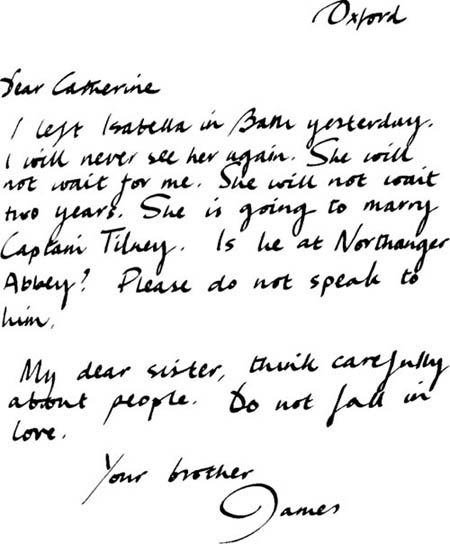 Oxford
Dear Catherine
I left Isabella in Bath yesterday.
I will never see her again. She will
not wait for me. She will not wait
two years. She is going to marry
Captain Tilney. Is he at Northanger
Abbey? Please do not speak to
him.
My dear sister, think carefully
about people. Do not fall in
love.
Your brother
James